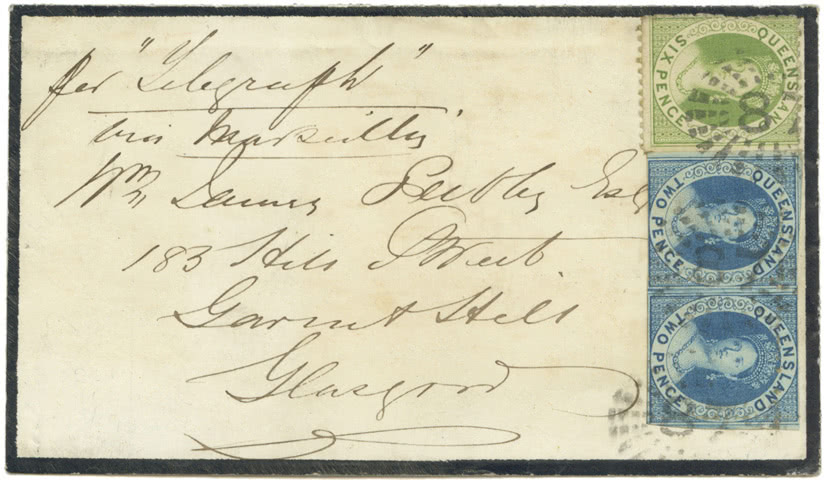 per "Telegraph"
via Marseilles
Wm Esq
183 Hill Street
Garnet Hill
Glasgow
QUEENSLAND
SIX PENCE
8
QUEENSLAND
TWO PENCE
QUEENSLAND
TWO PENCE